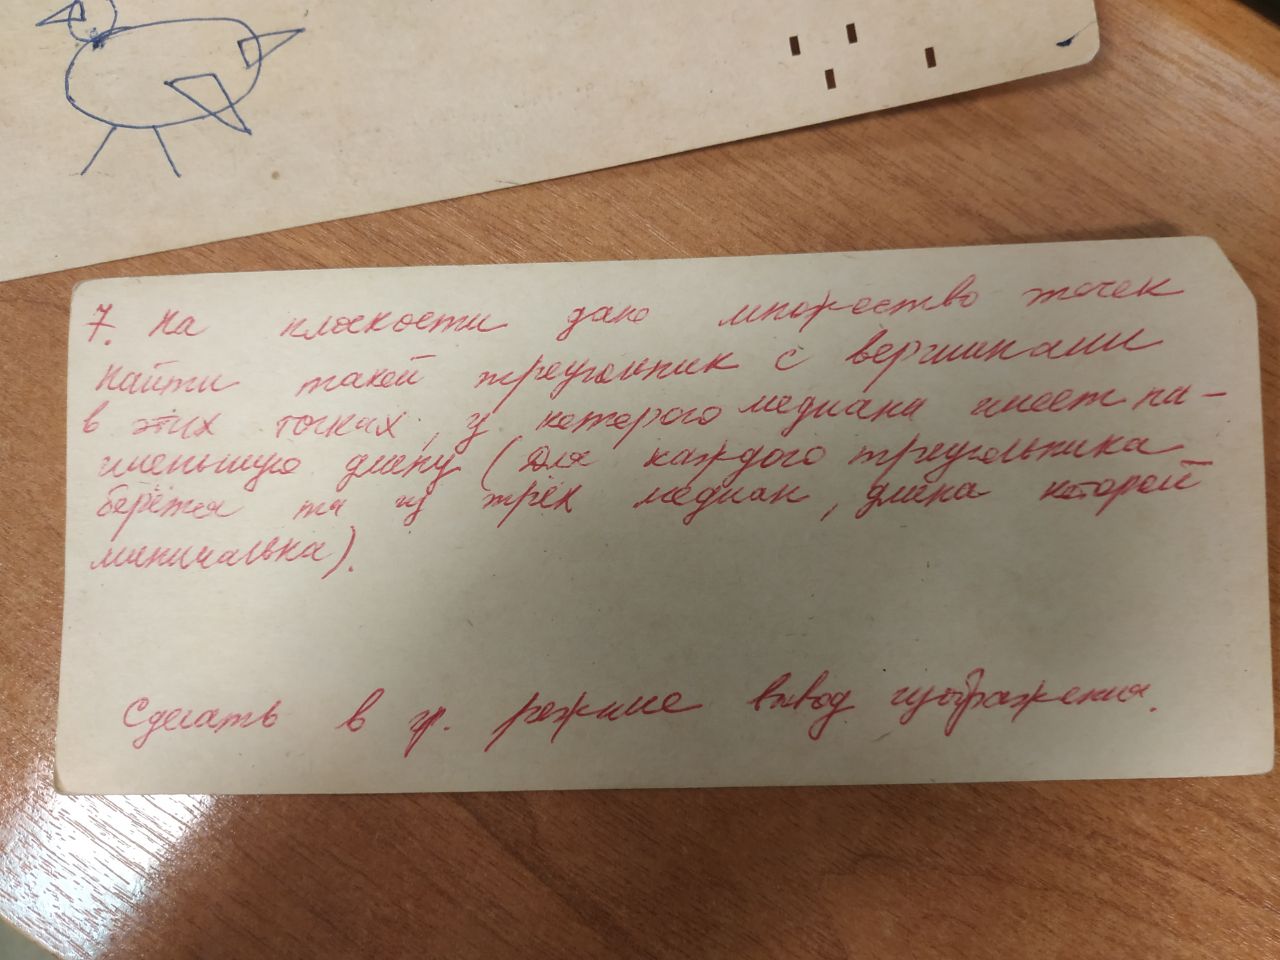 7. На плоскости дано множество точек
Найти такой треугольник с вершинами
в этих точках, у которого медиана имеет на-
именьшую длину (для каждого треугольника
берётся та из трёх медиан, длина которой
минимальна).
Сделать в гр. режиме вывод изображения.